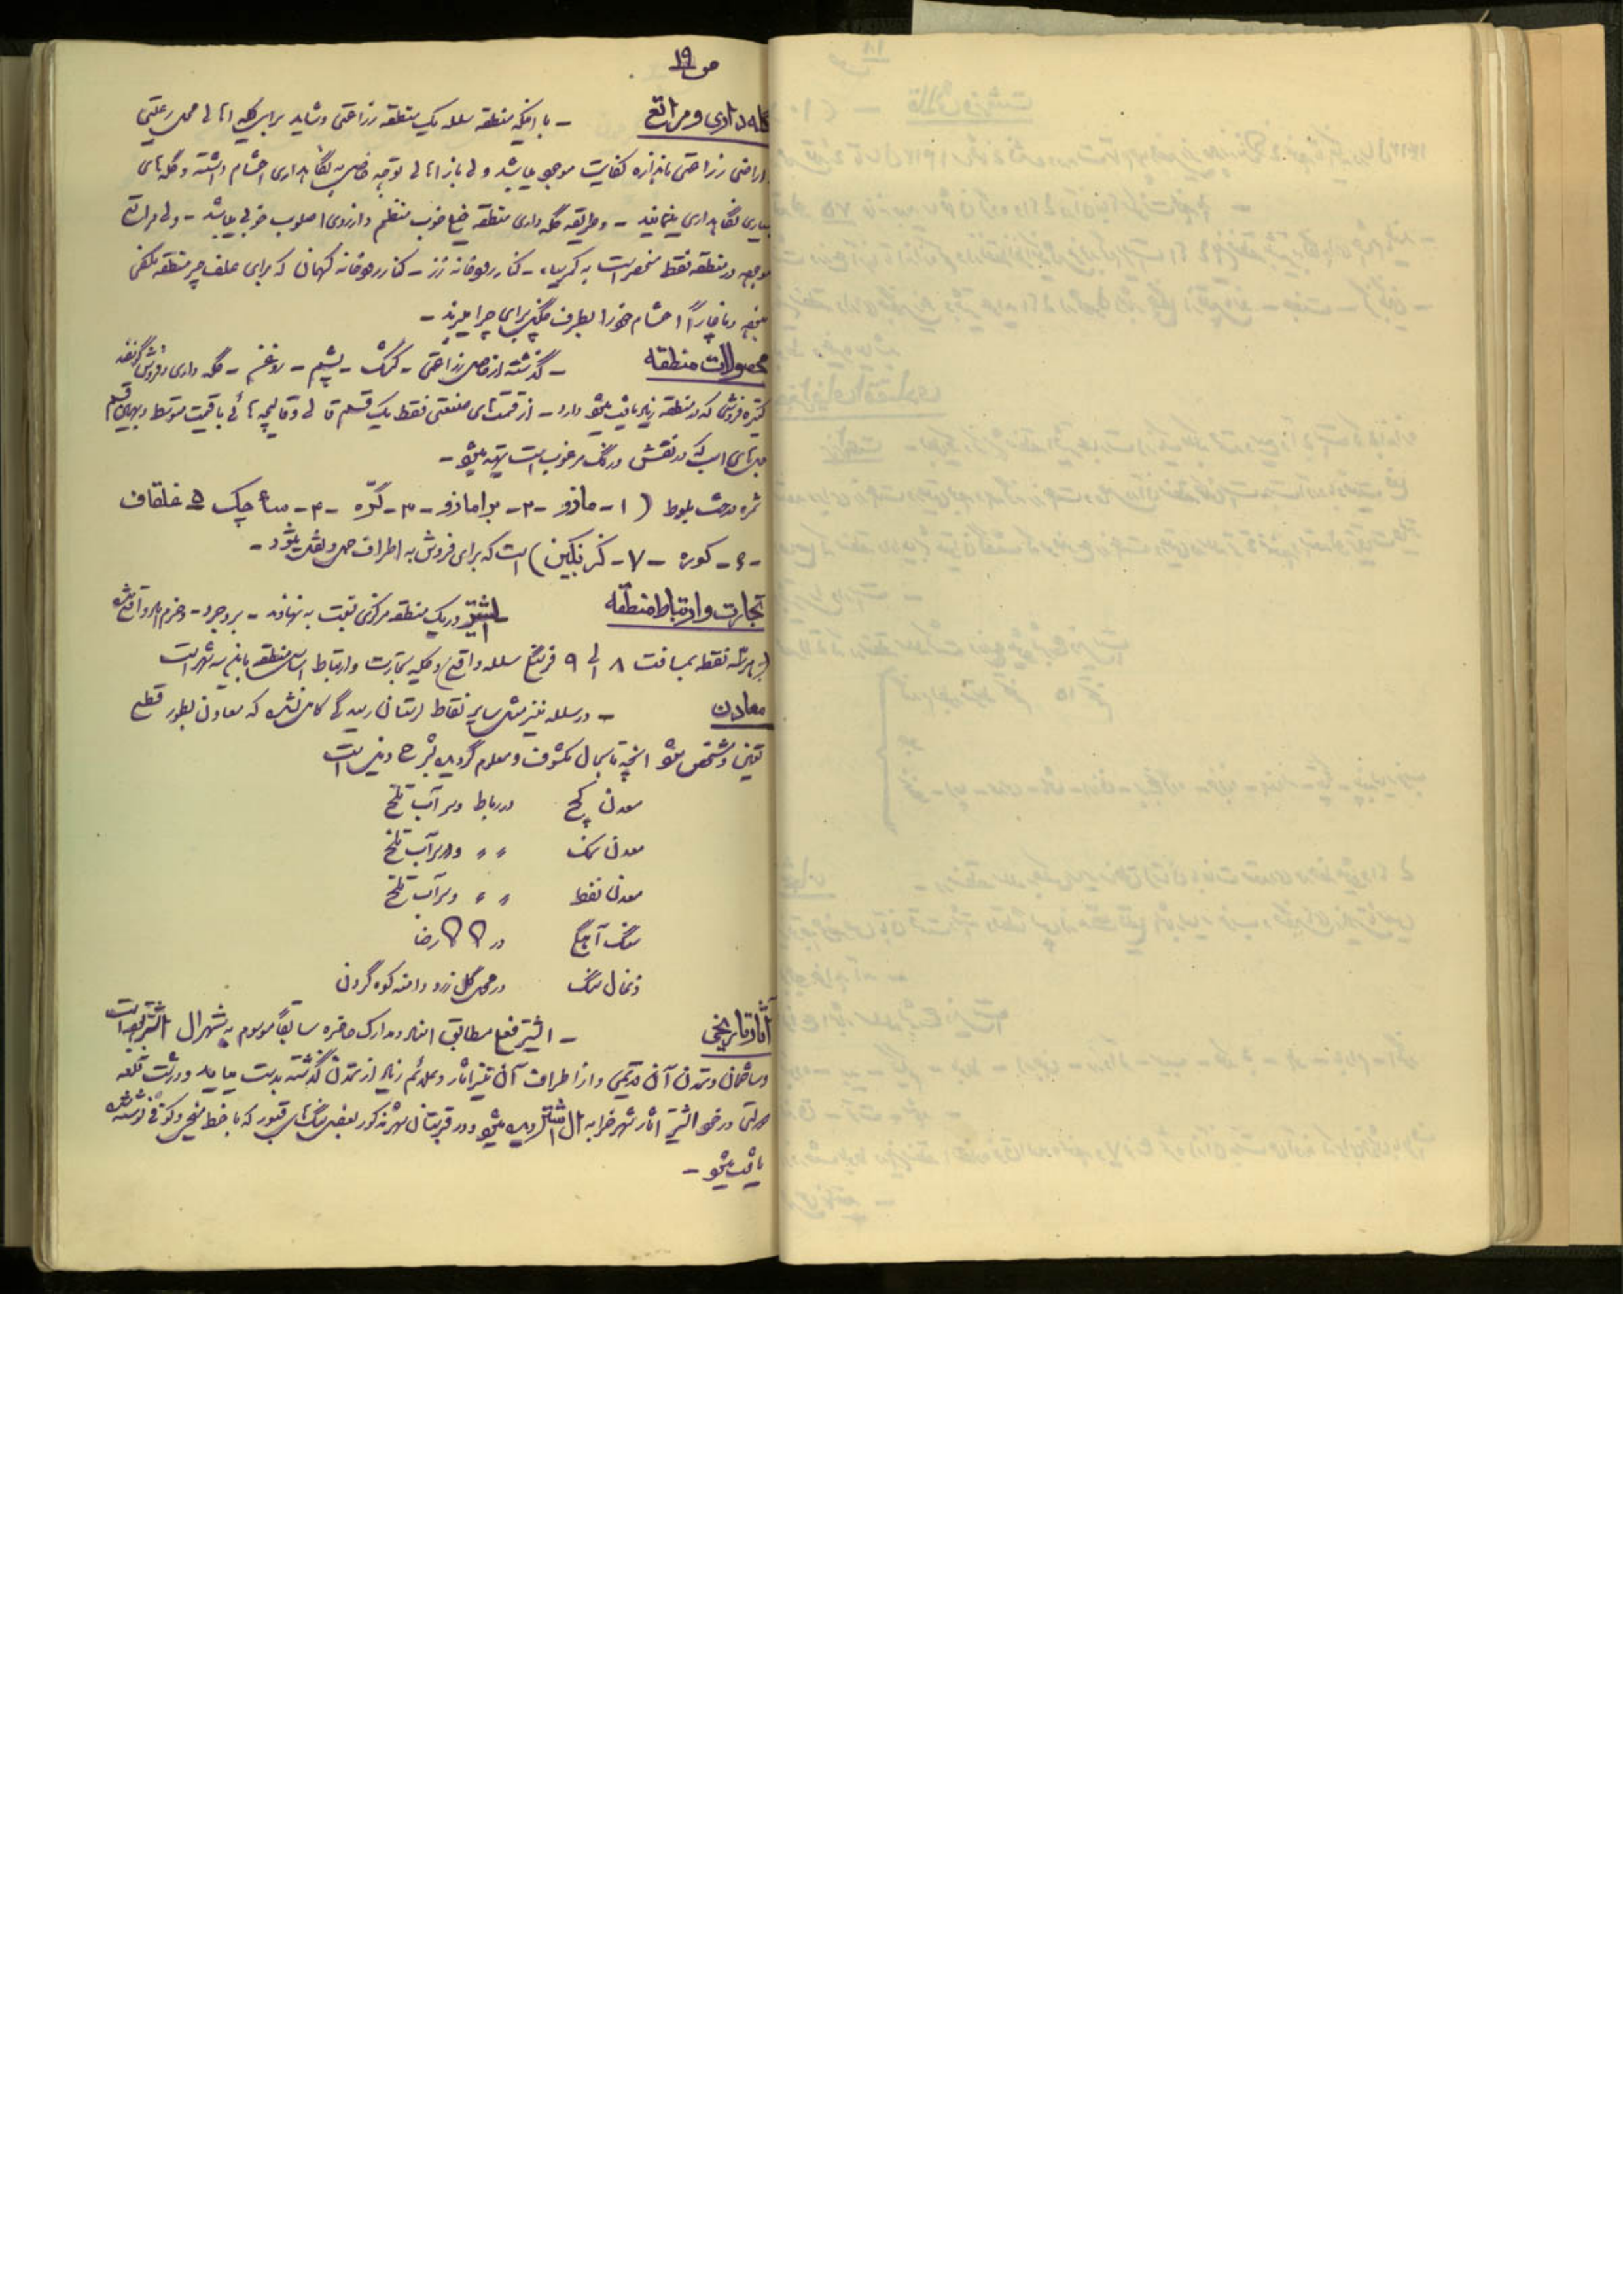 ص ۱۹
گله داری و مراتع – با اینکه منطقه سلسله یک منطقه زراعتی و شاید برای کلیه اهالی محل رعیتی
اراضی زراعتی باندازه کفایت موجود میباشد ولی باز اهالی توجه خاصی به نگاهداری احشام داشته و گله های
بسیاری نگاهداری مینمایند – و طریقه گله داری منطقه خوب منظم و از روی اصلوب خوبی میباشد – ولی مراتع
موجود در منطقه فقط منحصر است به – کنار رودخانه – کنار رودخانه کهمان که برای علف چر منطقه مکفی
نبوده و ناچاراً احشام خود را بطرف برای چرا میبرند –
محصولات منطقه – گذشته از زراعتی – کرک – پشم – روغن – گله داری و فروش گوسفند
کتیره فروشی که در منطقه زیاد یافت میشود دارد – از قسمتهای صنعتی فقط یک قسم قالی و قالیچه با قیمت متوسط
است که در نقش و رنگ مرغوب است تهیه میشود –
ثمره درخت بلوط (۱ – مازو – ۲ – برامازو – ۳ – گزه – ۴ – چک ۵ غلقاف
– ۶ – کوره – ۷ – گزنگبین) است که برای فروش به اطراف حمل و نقل میشود –
تجارت و ارتباط منطقه الشتر در یک منطقه مرکزی نسبت به نهاوند – بروجرد – و خرم آباد واقع شده
نقطه بمسافت ۸ الی ۹ فرسخ سلسله واقع) و کلیه تجارت و ارتباط منطقه باین سه شهر است
معادن – در سلسله نیز مثل سایر نقاط لرستان رسیدگی کامل نشده که معادن بطور قطع
تعیین و مشخص شود آنچه تا بحال مکشوف و معلوم گردیده بشرح ذیل است
معدن گچ در رباط و سرآب تلخ
معدن نمک 〃 〃 و سرآب تلخ
معدن نفط 〃 〃 و سرآب تلخ
سنگ آهن در رضا
ذغال سنگ در محل گل زرد دامنه کوه گردن
آثار تاریخی – الشتر مطابق اسناد و مدارک حاضره سابقاً موسوم به شهر ال اشتر بوده است
و ساختمان و تمدن آن قدیمی و از اطراف آن نیز آثار و علائم زیاد از تمدن گذشته بدست میاید و در پشت قلعه
دولتی در خود الشتر آثار شهر خرابه ال اشتر دیده میشود و در قبرستان شهر مذکور بعضی سنگ های قبور که با خط میخی و کوفی نوشته شده
یافت میشود –